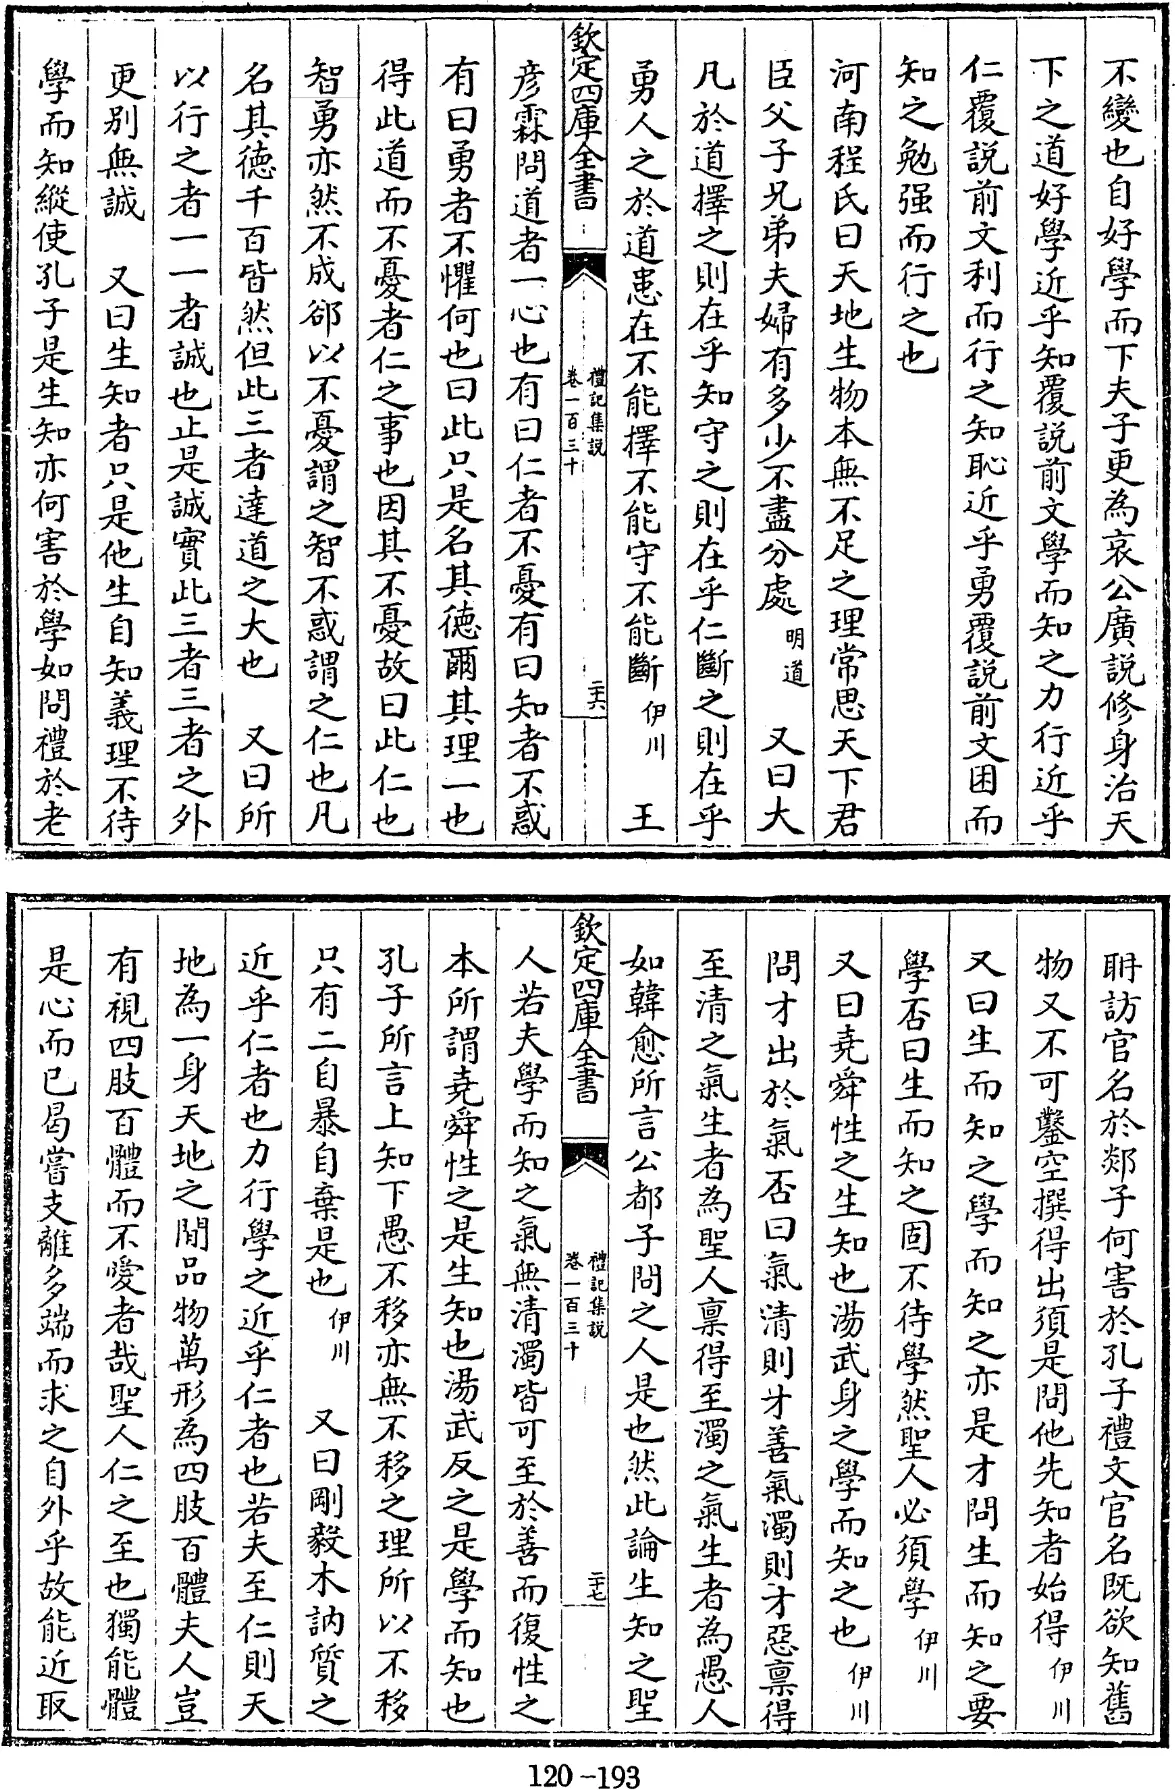 不變也自好學而下夫子更為哀公廣説修身治天
下之道好學近乎知覆説前文學而知之力行近乎
仁覆説前文利而行之知恥近乎勇覆説前文困而
知之勉强而行之也
河南程氏曰天地生物本無不足之理常思天下君
臣父子兄弟夫婦有多少不盡分處明道　又曰大
凡於道擇之則在乎知守之則在乎仁斷之則在乎
勇人之於道患在不能擇不能守不能斷伊川　王
欽定四庫全書
禮記集説
卷一百三十
二六
彦霖問道者一心也有曰仁者不憂有曰知者不惑
有曰勇者不懼何也曰此只是名其徳爾其理一也
得此道而不憂者仁之事也因其不憂故曰此仁也
智勇亦然不成郤以不憂謂之智不惑謂之仁也凡
名其徳千百皆然但此三者達道之大也　又曰所
以行之者一一者誠也止是誠實此三者三者之外
更别無誠　又曰生知者只是他生自知義理不待
學而知縱使孔子是生知亦何害於學如問禮於老
耼訪官名於郯子何害於孔子禮文官名既欲知舊
物又不可鑿空撰得出須是問他先知者始得伊川
又曰生而知之學而知之亦是才問生而知之要
學否曰生而知之固不待學然聖人必須學伊川
又曰堯舜性之生知也湯武身之學而知之也伊川
問才出於氣否曰氣清則才善氣濁則才惡禀得
至清之氣生者為聖人禀得至濁之氣生者為愚人
如韓愈所言公都子問之人是也然此論生知之聖
欽定四庫全書
禮記集説
卷一百三十
二七
人若夫學而知之氣無清濁皆可至於善而復性之
本所謂堯舜性之是生知也湯武反之是學而知也
孔子所言上知下愚不移亦無不移之理所以不移
只有二自暴自棄是也伊川　又曰剛毅木訥質之
近乎仁者也力行學之近乎仁者也若夫至仁則天
地為一身天地之間品物萬形為四肢百體夫人豈
有視四肢百體而不愛者哉聖人仁之至也獨能體
是心而已曷嘗支離多端而求之自外乎故能近取
120-193